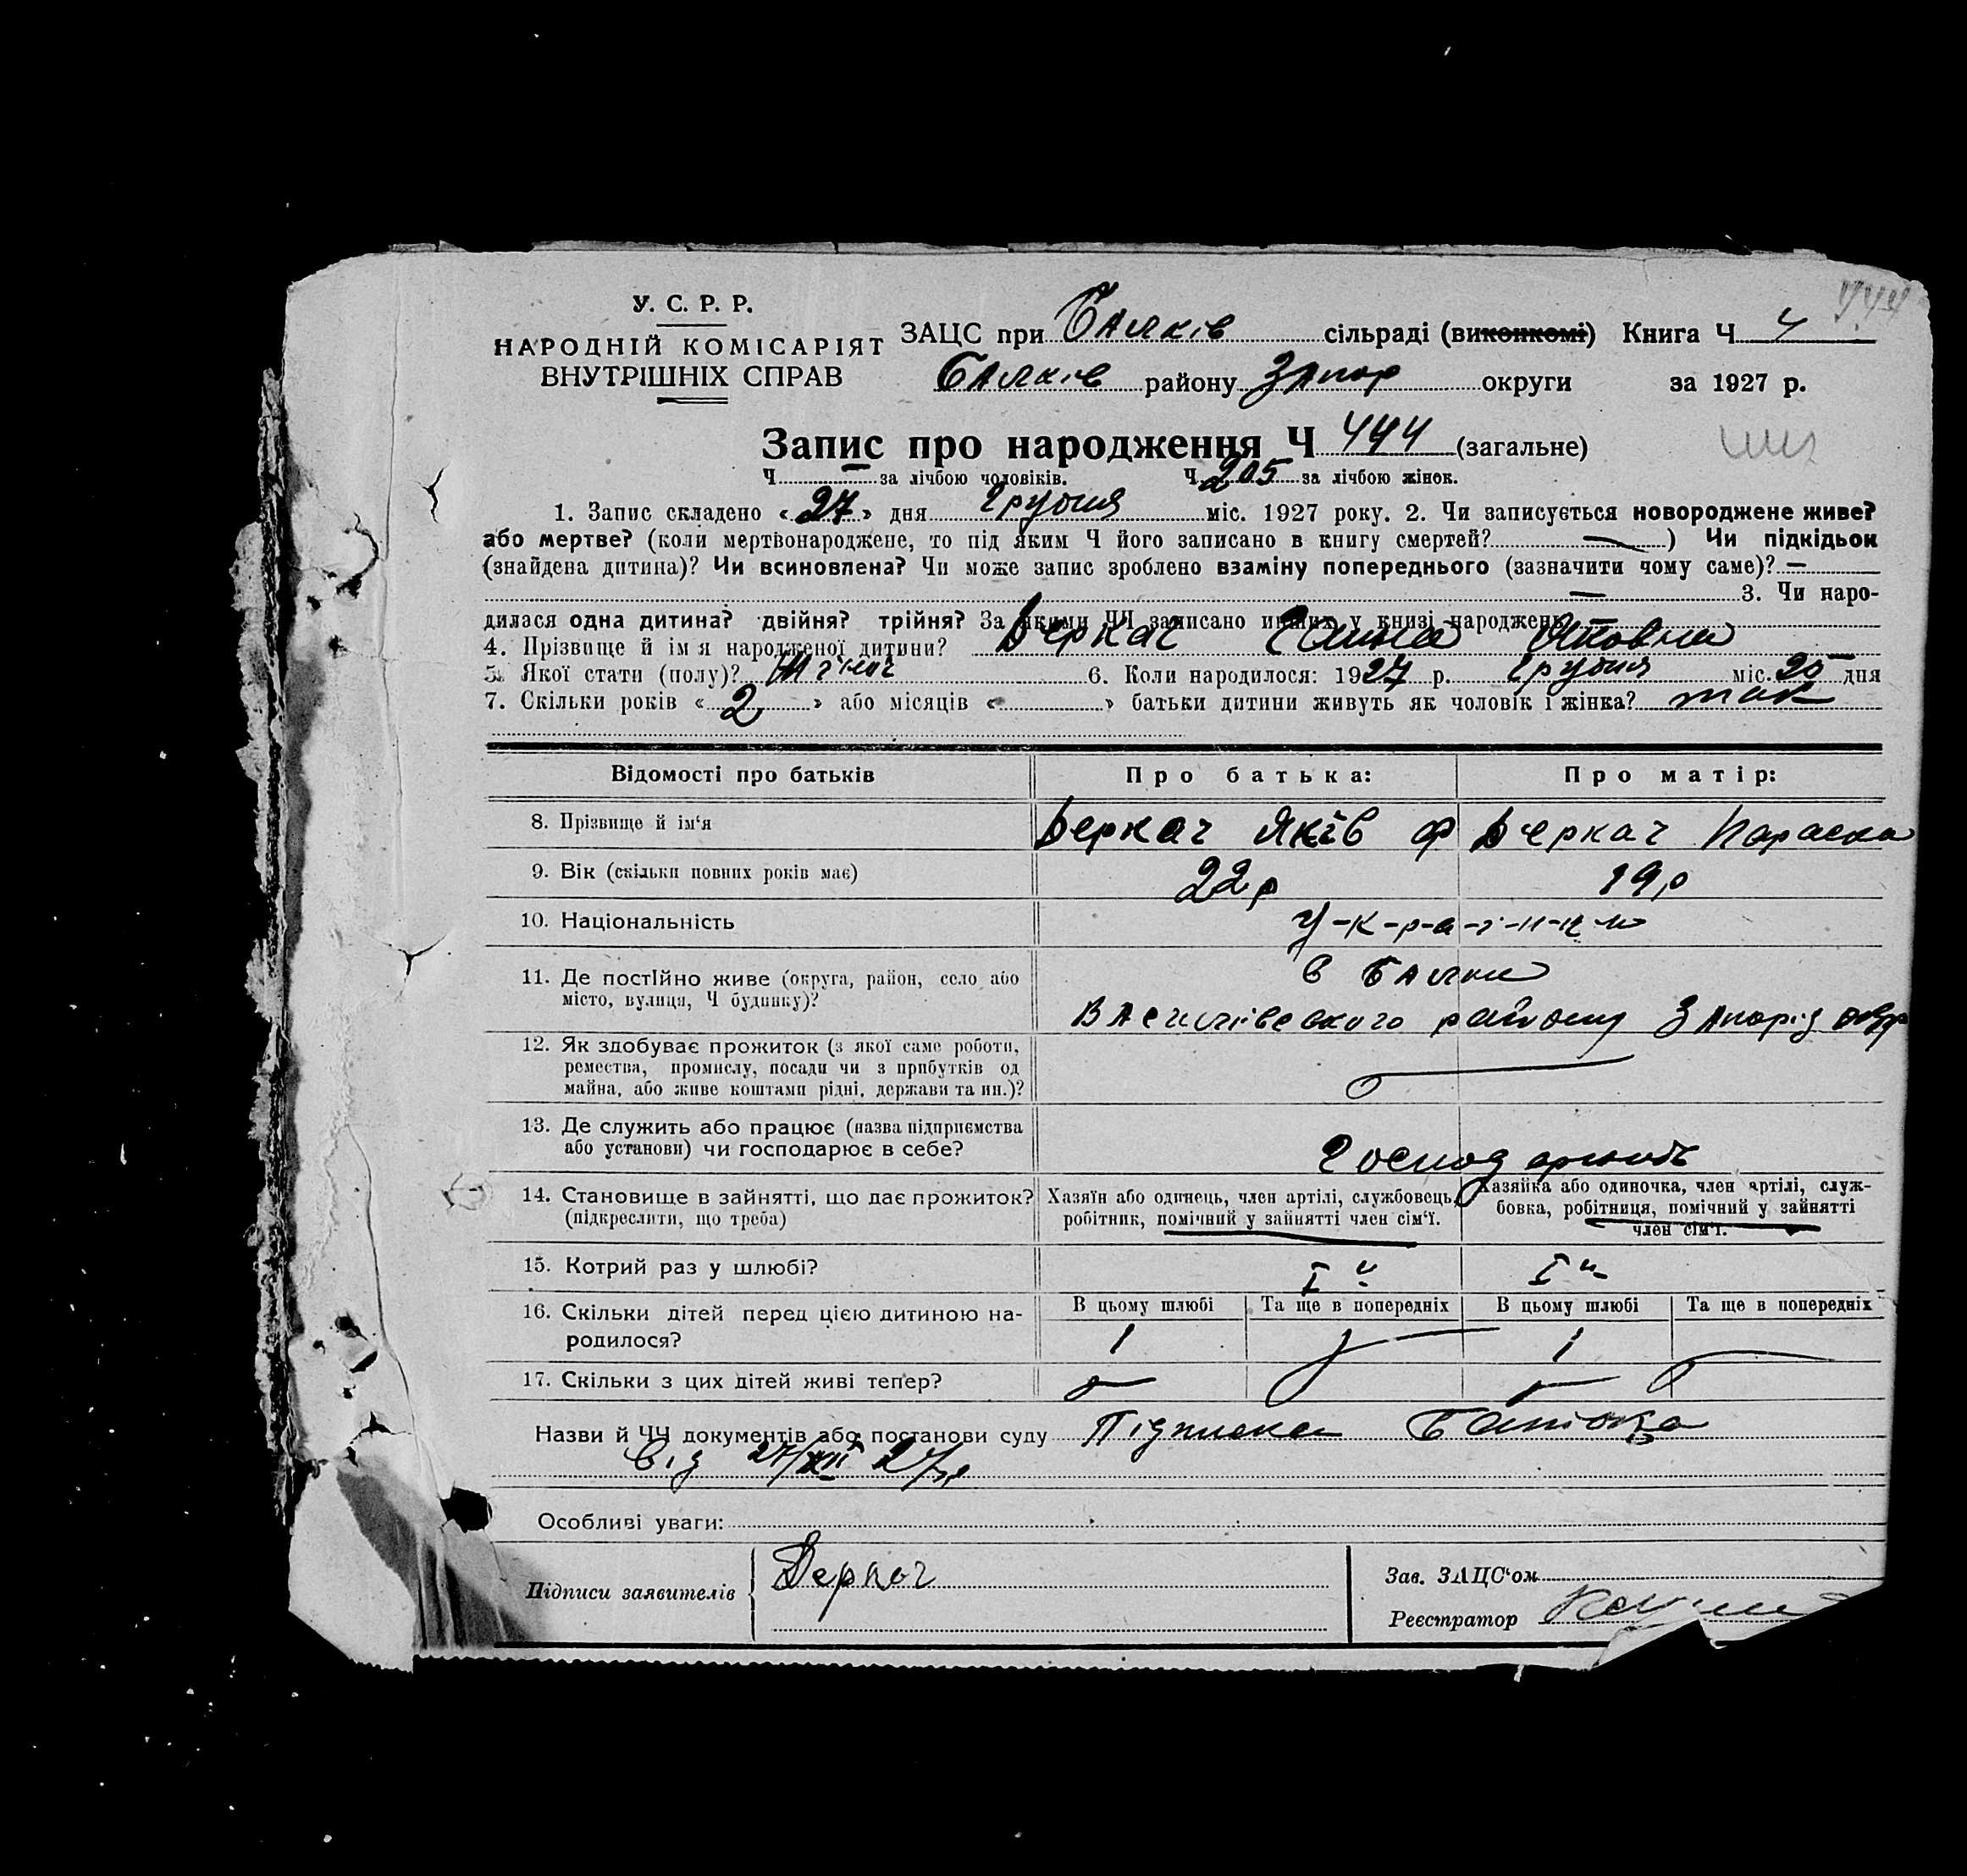 444
У. С. Р. Р.
НАРОДНІЙ КОМІСАРІЯТ
ВНУТРІШНІХ СПРАВ
ЗАЦС при Балків сільраді (виконкомі) Книга Ч 4
Балків району Запор округи за 1927 р.
Запис про народження Ч 444 (загальне)
Ч — за лічбою чоловіків. Ч 205 за лічбою жінок.
1. Запис складено « 27 » дня Грудня міс. 1927 року. 2. Чи записується новороджене живе?
або мертве? (коли мертвонароджене, то під яким Ч його записано в книгу смертей? — ) Чи підкідьок
(знайдена дитина)? Чи всиновлена? Чи може запис зроблено взаміну попереднього (зазначити чому саме)? —
— 3. Чи наро-
дилася одна дитина? двійня? трійня? За якими ЧЧ записано инших у книзі народжень
4. Прізвище й ім я народженої дитини? Деркач Ганна Яковна
5. Якої стати (полу)? Жіноч 6. Коли народилося: 1927 р. Грудня міс. 25 дня
7. Скільки років « 2 » або місяців « » батьки дитини живуть як чоловік і жінка? так
Відомості про батьків Про батька: Про матір:
8. Прізвище й ім'я Деркач Яків Ф Деркач Параска
9. Вік (скільки повних років має) 22 р 19 р
10. Національність У-к-р-а-ї-н-ц и
11. Де постійно живе (округа, район, село або місто, вулиця, Ч будинку)? в Балки
Василівського району Запоріз окр
12. Як здобуває прожиток (з якої саме роботи,
ремества, промислу, посади чи з прибутків од
майна, або живе коштами рідні, держави та ин.)? —
13. Де служить або працює (назва підприємства
або установи) чи господарює в себе? Господарюють
14. Становище в зайнятті, що дає прожиток? (підкреслити, що треба)
Хазяїн або одинець, член артілі, службовець,
робітник, помічний у зайнятті член сім'ї.
Хазяйка або одиночка, член артілі, служ-
бовка, робітниця, помічний у зайнятті
член сім'ї.
15. Котрий раз у шлюбі? І й І й
16. Скільки дітей перед цією дитиною на-
родилося?
В цьому шлюбі Та ще в попередніх В цьому шлюбі Та ще в попередніх
1 — 1 —
17. Скільки з цих дітей живі тепер? — — — —
Назви й ЧЧ документів або постанови суду Підписка Батька
Від 27/XII 27 р
Особливі уваги:
Підписи заявителів Деркач
Зав. ЗАЦС'ом
Реєстратор